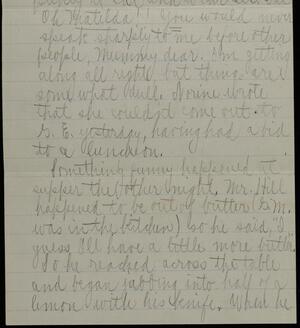 Oh Matilda"! You would never
speak sharply to me before other
people, Mummy dear. I'm getting
along all right, but things are
some what dull. Norine wrote
that she couldn't come out to
S. E. yesterday, having had a bid
to a luncheon.
Something funny happened at
supper the other night. Mr. Hill
happened to be out of butter (& M.
was in the kitchen) so he said, "I
guess I'll have a little more butter."
So he reached across the table
and began jabbing into half of a
lemon with his knife. When he